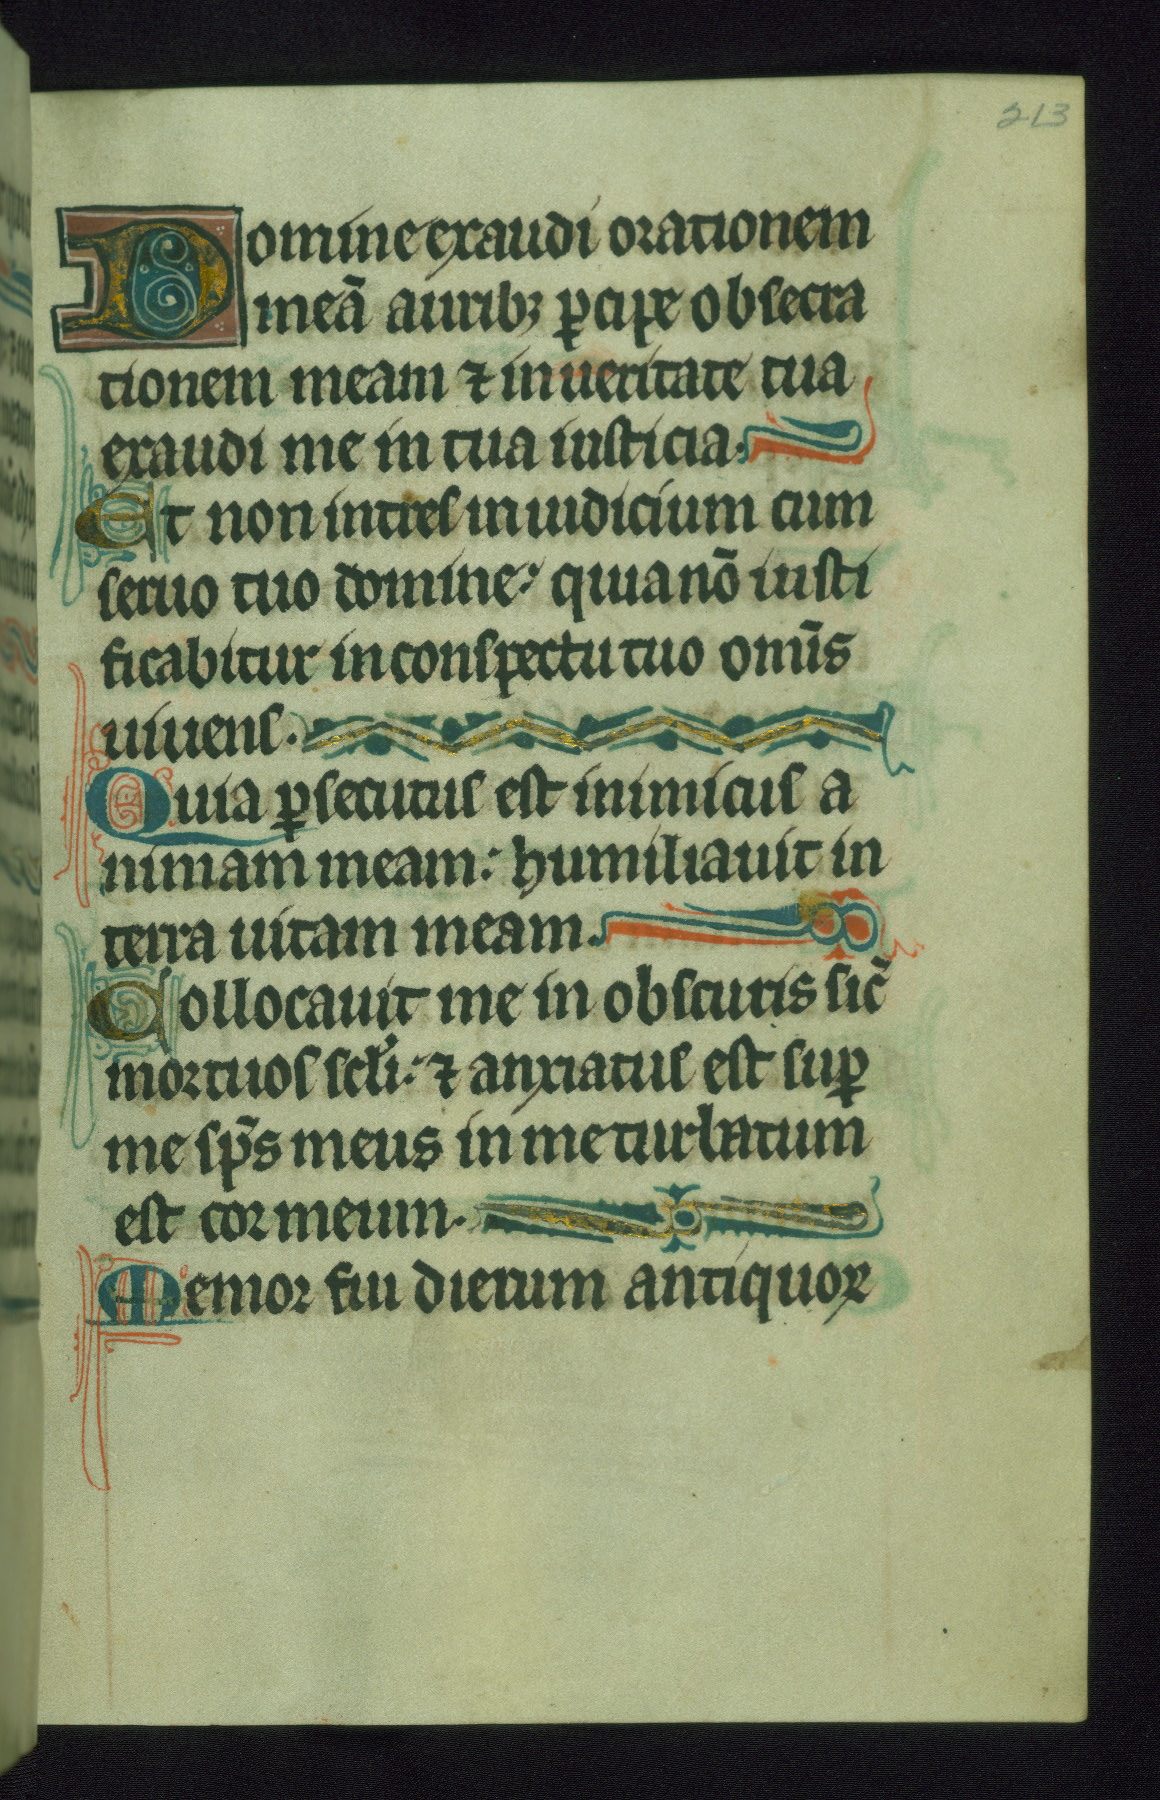 213
Domine exaudi orationem
meā auribꝫ ꝑcipe obsecra
tionem meam ⁊ in ueritate tua
exaudi me in tua iusticia.
Et non intres in iudicium cum
seruo tuo domine: quia nō iusti
ficabitur in conspectu tuo omīs
uiuens.
Quia ꝑsecutus est inimicus a
nimam meam: humiliauit in
terra uitam meam.
Collocauit me in obscuris sic̄
mortuos scl̓i: ⁊ anxiatus est suꝑ
me sp̄s meus in me turbatum
est cor meum.
Memor fui dierum antiquoꝝ